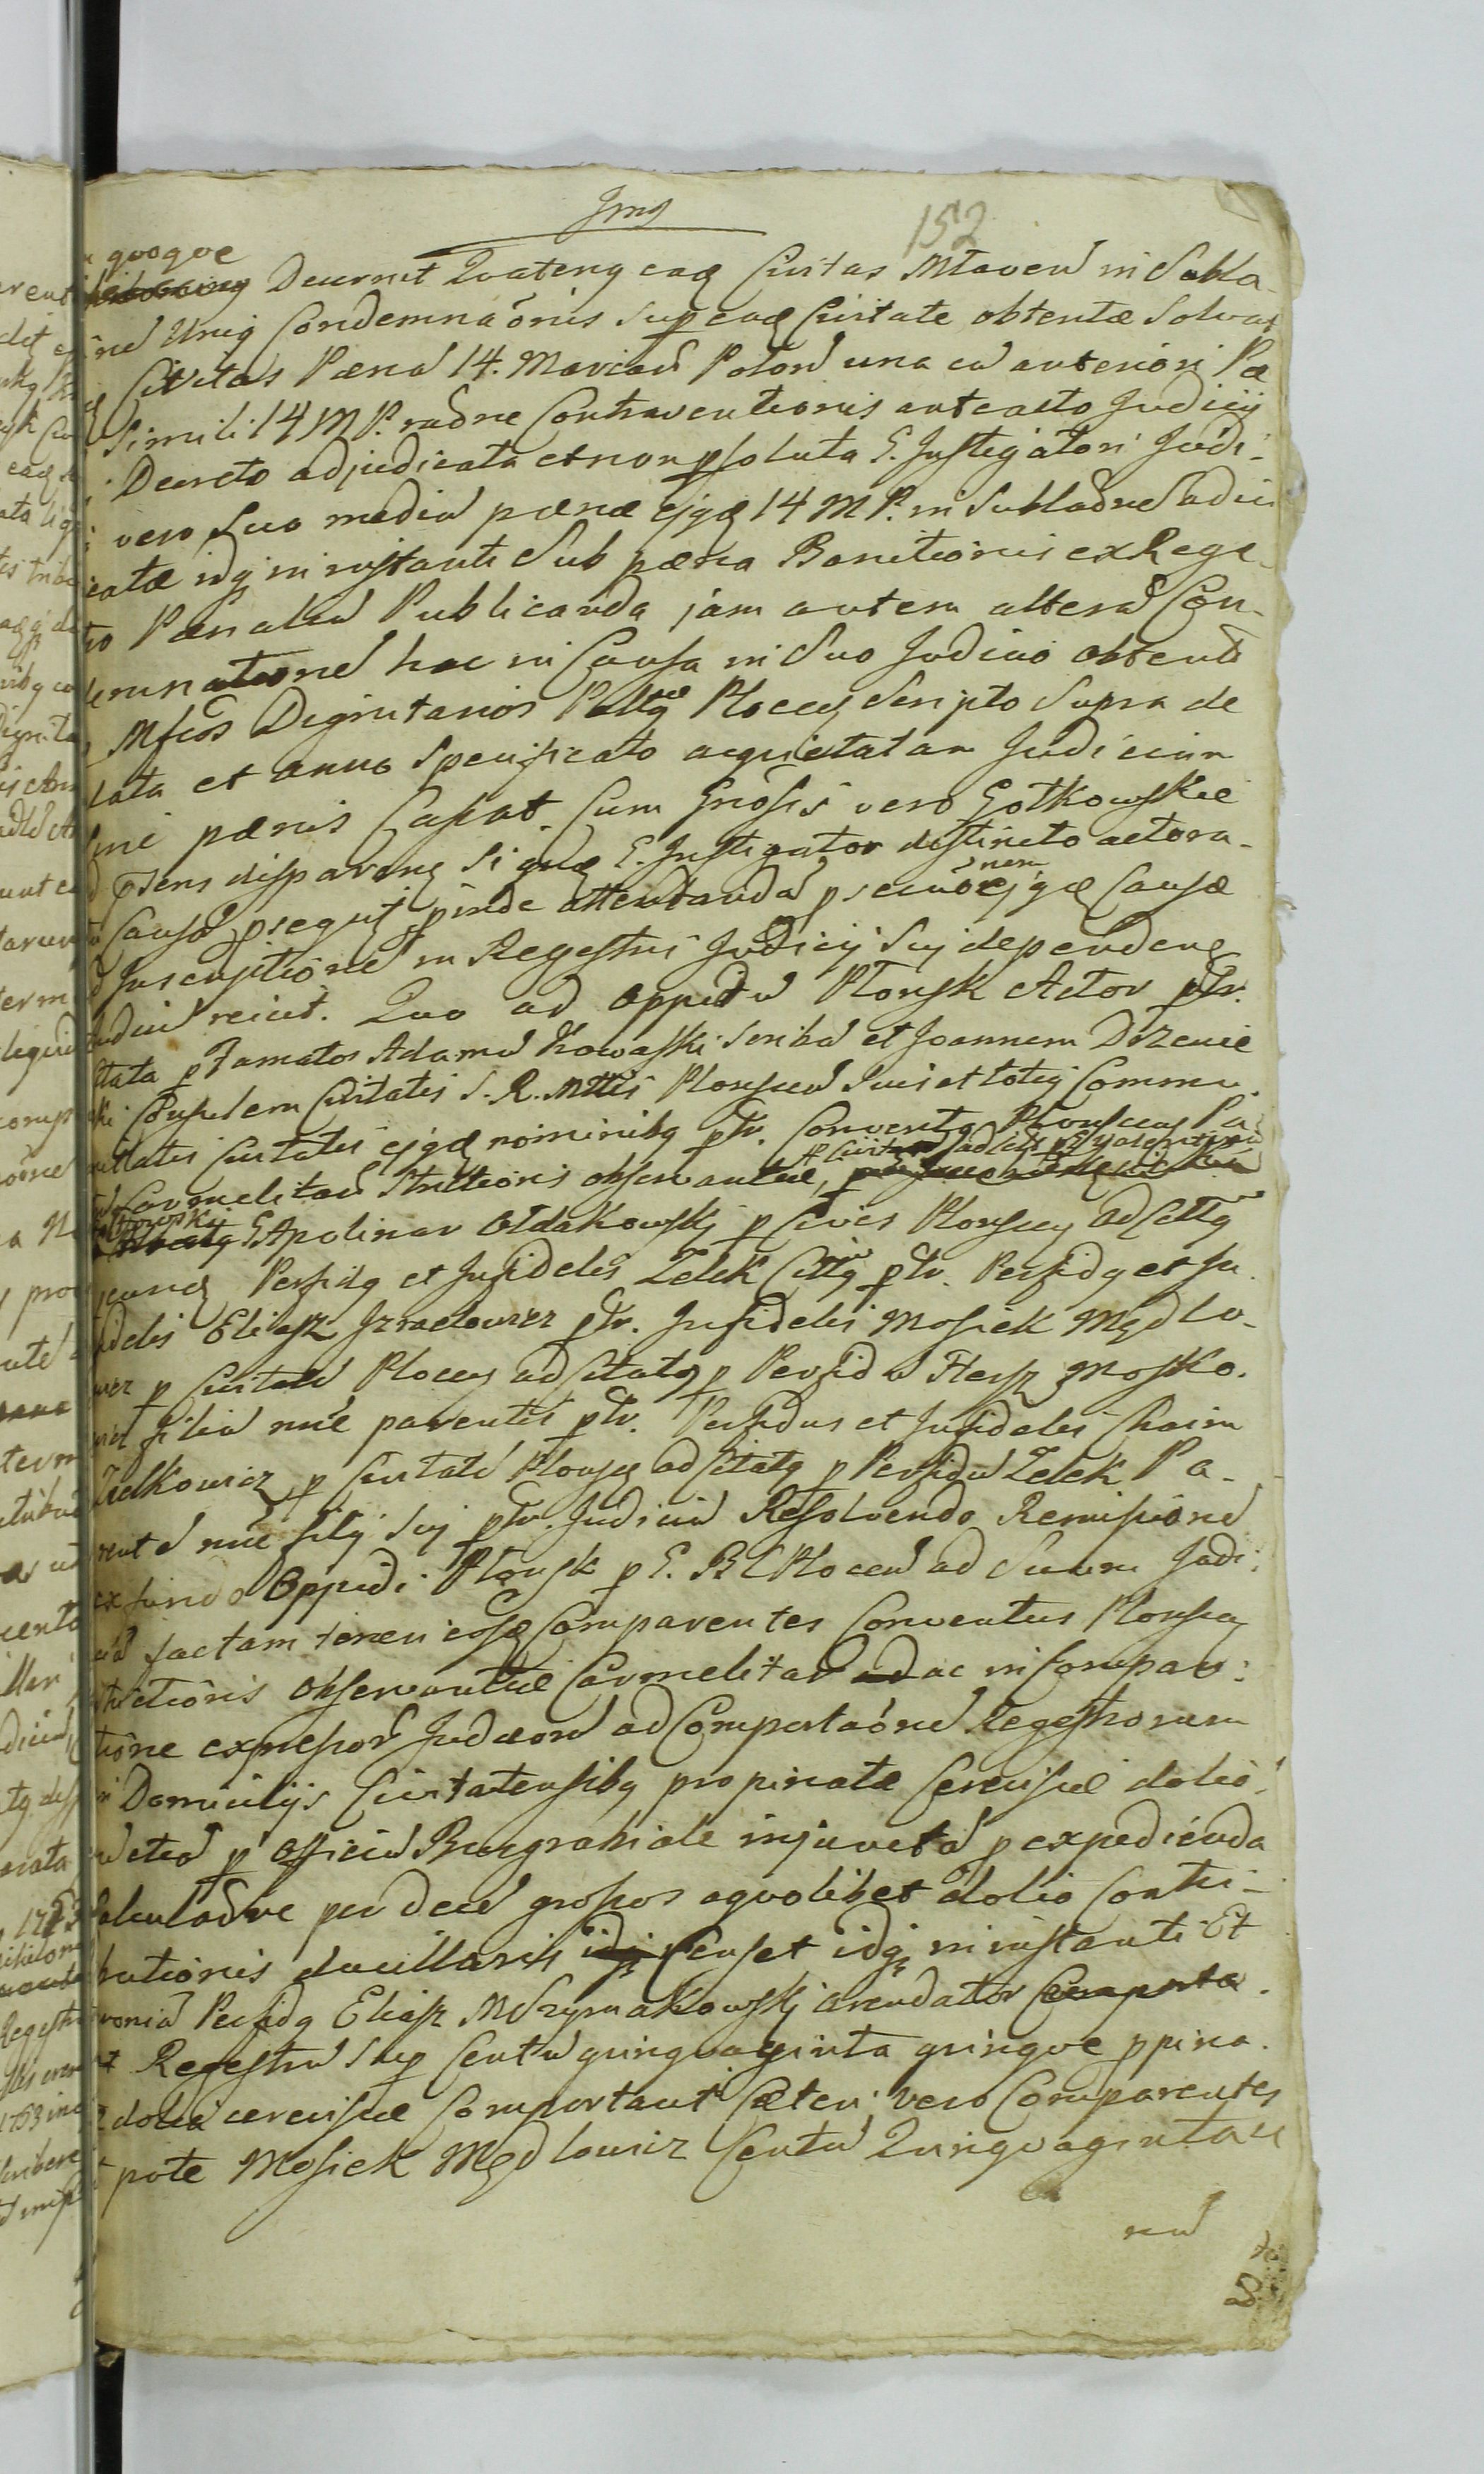 Jmg
152
quoqve
Decernit Quateng eadē Civitas Mlaven in Subla-
Unig Condemnaōnis Sup eadē Civitate obtentæ Solvat
Civitas Pæna 14. Marcar Polon una cu anteriori Pæ
Simili 14 M P. raōne Contraventionis anteacto Judicij
Decreto adjudicata et non psoluta G. Instigatori Judi-
vero Suo mediā pænæ ejgdē 14 M P. in Sublaōne adiu
catæ idq in instanti Sub pæna Banitionis ex Rege-
tro Pænaliū Publicanda jam autem alterā Con-
demnationē hac in Causa in Suo Judicio obtentā
Mfcos Dignitarios Paltgue Plocen Scripto Supra de
data et anno Specificato acquietatam Judicium
Sine pænis Cassat. Cum Gnosis vero Gotkowskie
disparens G. Instigator distincto actora-
Causā psequit pinde attentandā nem ejgdē Causæ
Inscriptionē in Regestris Judicij Suj dependen
Judiciū reicit. Quo ad Oppidū Plonsk Actor ptr.
Citata p Famatos Adamū Kowalski Scribā et Joannem Drzewie
Consulem Civitatis S. R. Mttis Plonscen Suis et totig Commu-
nitatis Civitatis ejgdē nominibg ptr. Conventg Plonscen Pa-
Carmelitarū Strictioris observantiæ,
G Apolinar Oldakowskj p Cives Plonscen Adcittg
Perfidg et Infidelis Zelek Cittg ptr. Perfidg et In-
fidelis Eliasz Izraelowicz ptr. Infidelis Mosiek Mędlo-
wicz p Civitatē Plocen adcitatg p Perfidū Hersz Mosko-
wicz filiū nūc parentis ptr. Perfidus et Infidelis Chaim
Zielkowicz p Civitatē Plonscen adcitatg p Perfidū Zelek Pa-
rentē nūc filij Suj ptr. Judiciū Resolvendo Remissionē
ex fundo Oppidi Plonsk p G. B C Plocen ad Suum Judi-
ciū factam teneri eosdē Comparentes Conventus Plonscen
Strictioris Observantiæ Carmelitar ac in Compar-
tione expressor Judæorū ad Comportaōnē Regestrorum
in Domicilijs Civitatensibg propinatæ Cerevisiæ dolio-
p Officiū Burgrabiale injunctā p expedienda
Calculaōne per decē grossos a qvolibet dolio Contri-
butionis ducillaris Censet idq in instanti Et
Perfidg Eliasz Mszymakowskj arendator Comporta-
t Regestrū Sup Centū qvinqvaginta qvinqve ppina-
dolia cerevisiæ Comportant Cæteri vero Comparentes
pote Mosiek Mędlowicz Centū Qvinqvaginta